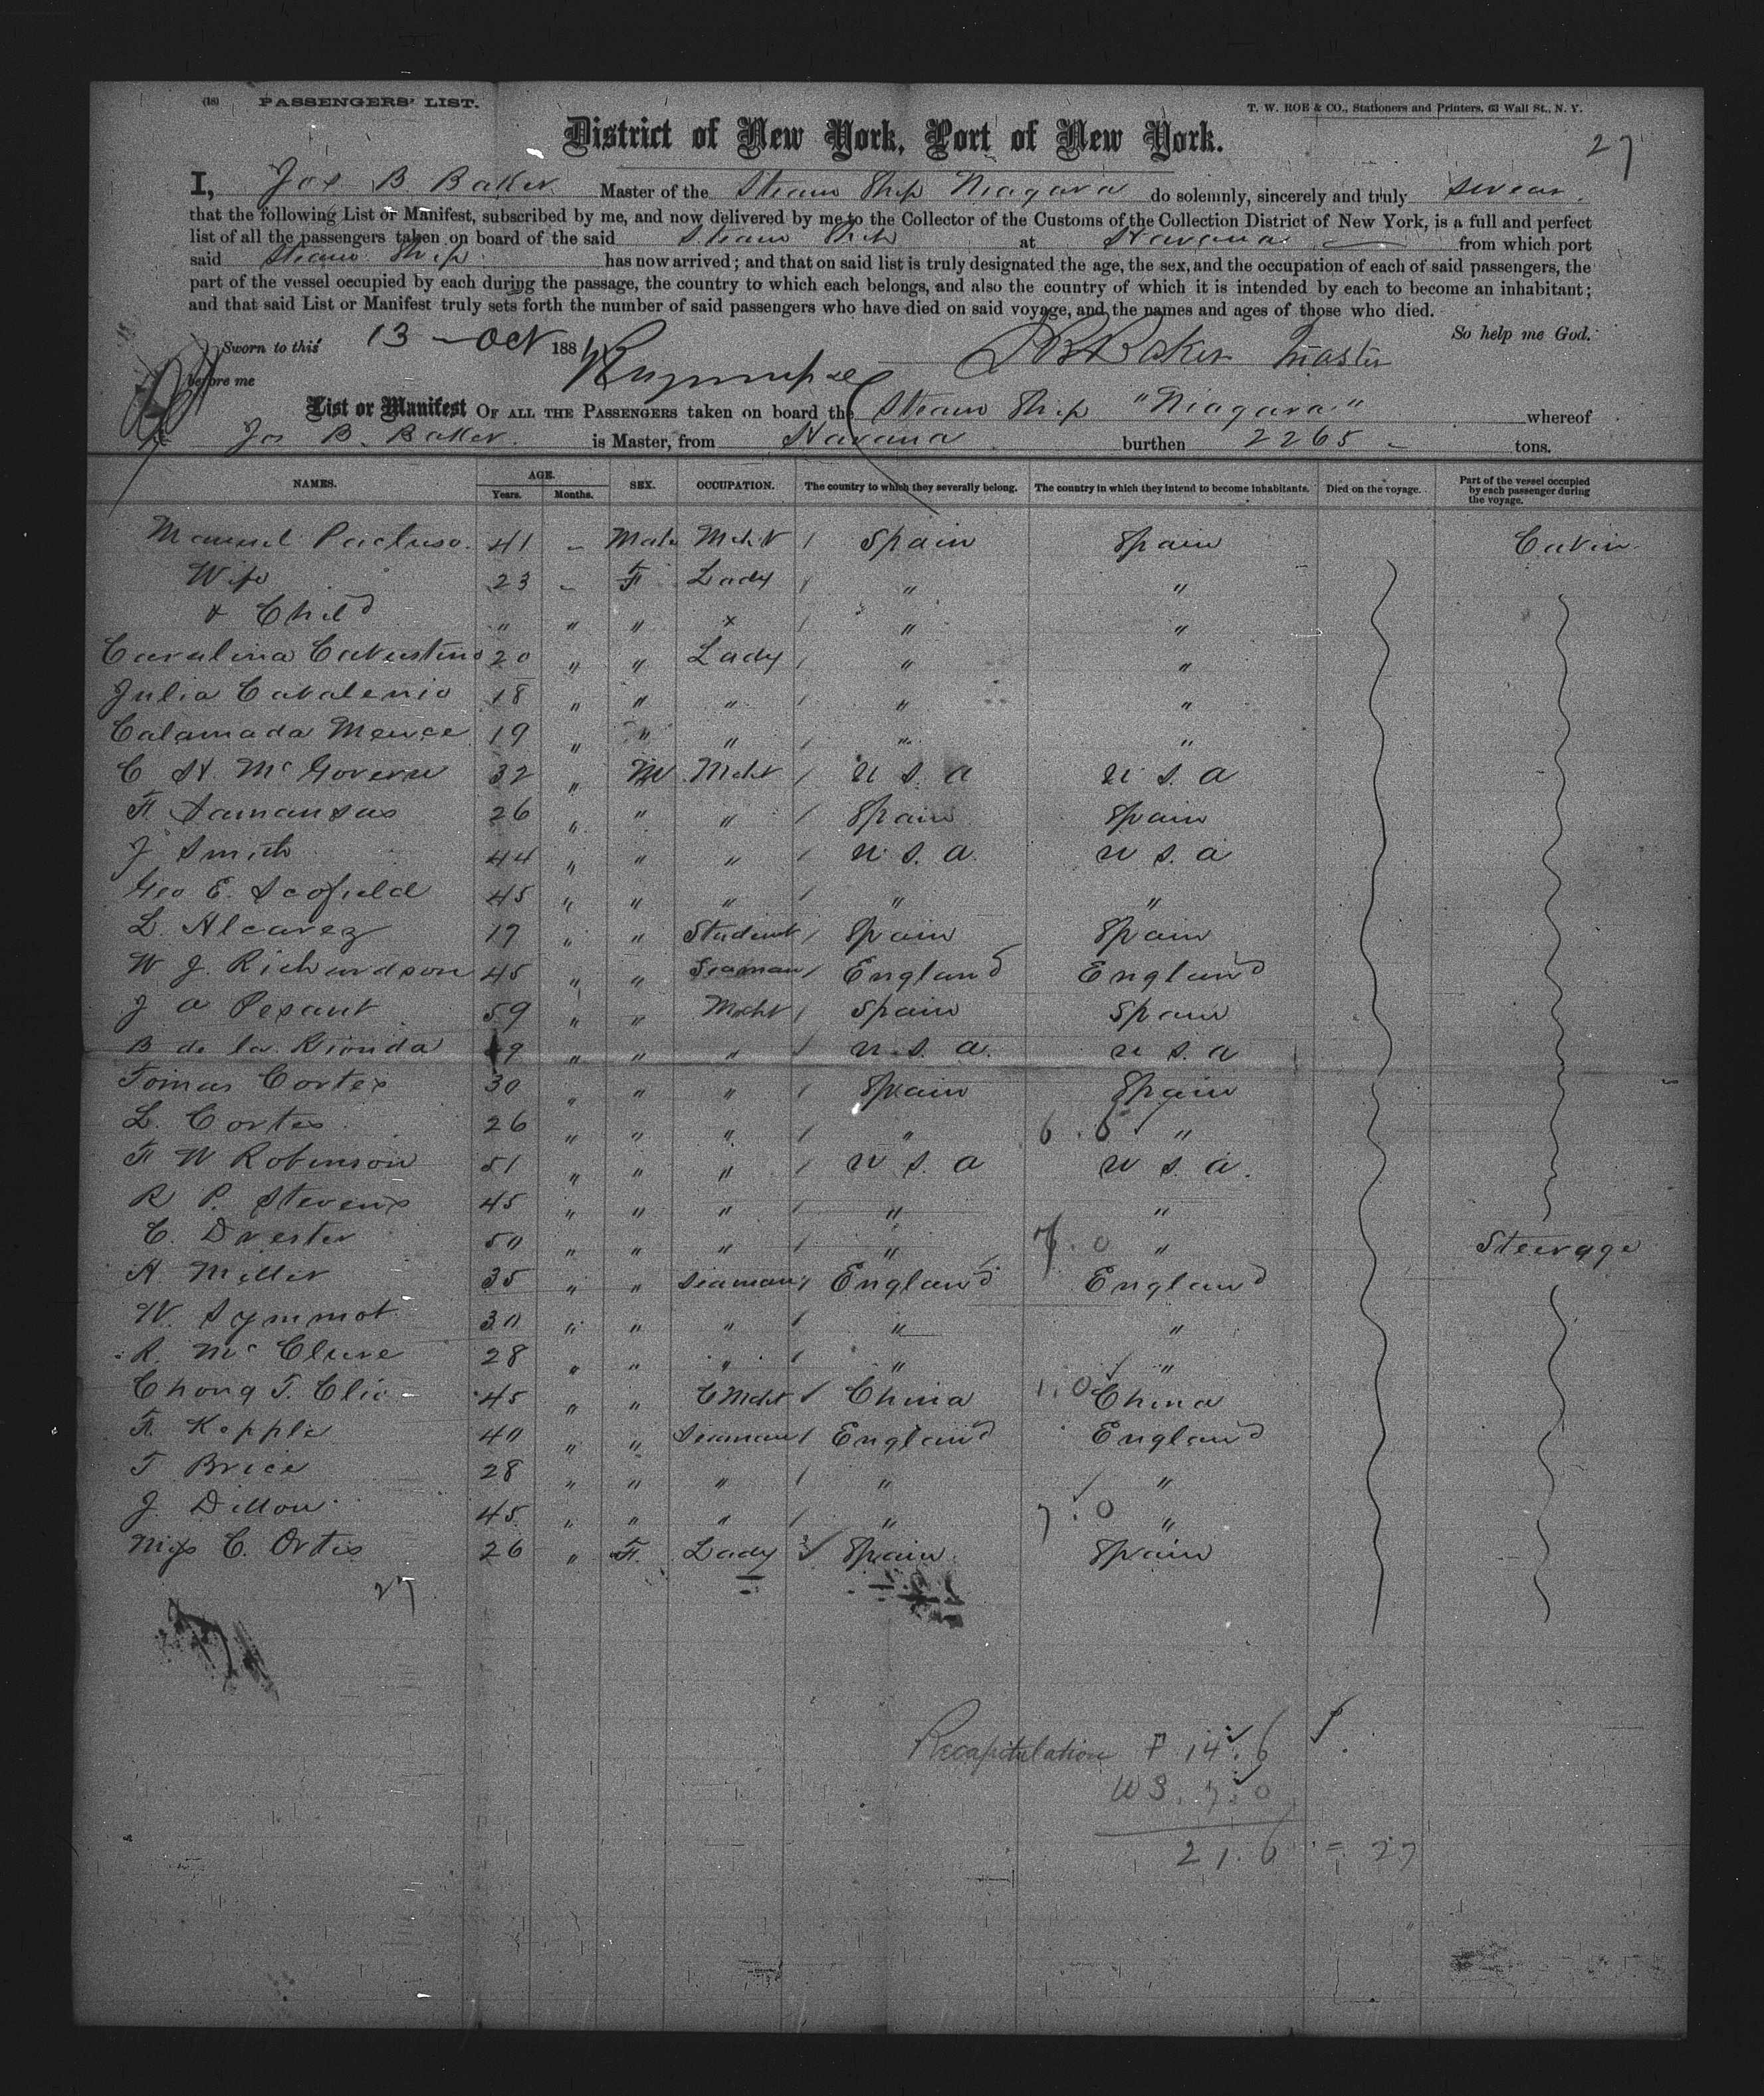 (18) PASSENGERS' LIST.
T. W. ROE & CO., Stationers and Printers, 63 Wall St., N. Y.
District of New York, Port of New York.
27
I, Jos B. Baker Master of the Steam Ship Niagara do solemnly, sincerely and truly swear
that the following List or Manifest, subscribed by me, and now delivered by me to the Collector of the Customs of the Collection District of New York, is a full and perfect
list of all the passengers taken on board of the said Steam Ship at Havana from which port
said Steam Ship has now arrived; and that on said list is truly designated the age, the sex, and the occupation of each of said passengers, the
part of the vessel occupied by each during the passage, the country to which each belongs, and also the country of which it is intended by each to become an inhabitant;
and that said List or Manifest truly sets forth the number of said passengers who have died on said voyage, and the names and ages of those who died.
So help me God.
Sworn to this 13 - Oct 188
J B Baker Master
before me
List or Manifest OF ALL THE PASSENGERS taken on board the Steam Ship "Niagara" whereof
Jos B. Baker is Master, from Havana burthen 2265 - tons.
NAMES. AGE. Years. Months. SEX. OCCUPATION. The country to which they severally belong. The country in which they intend to become inhabitants. Died on the voyage. Part of the vessel occupied by each passenger during the voyage.
Manuel 41 - Male Mcht / Spain Spain Cabin
Wife 23 - F Lady / " "
& Child " " " x / " "
Carolina 20 " " Lady / " "
Julia 18 " " " / " "
19 " " " / " "
C H. McGovern 32 " M Mcht / U S. A U S. A
F. Samansas 26 " " " / Spain Spain
J Smith 44 " " " / U. S. A. U S. A
Geo E. Scofield 45 " " " / " "
L. Alcarez 17 " " Student / Spain Spain
W J. Richardson 45 " " Seaman / England England
J A Pesant 59 " " Mcht / Spain Spain
B de la Rionda 9 " " " / U. S. A. U S. A
Tomas Cortes 30 " " " / Spain Spain
L. Cortes 26 " " " / " 6 . 6 "
F W Robinson 51 " " " / U S. A U S A.
R P. Stevens 45 " " " / " "
C. Drester 50 " " " / " 7 . 0 " Steerage
A. Miller 35 " " Seaman / England England
W. Symmot 30 " " " / " "
R. McClure 28 " " " / " / "
Chong T. 45 " " C Mcht / China 1. 0 China
F. Kepple 40 " " Seaman / England England
T Brice 28 " " " / " / "
J. Dillon 45 " " " / " 7 . 0 "
C. Ortis 26 " F. Lady / Spain Spain
27
Recapitulation F 14. 6
W S. 7. 0
21. 6 = 27